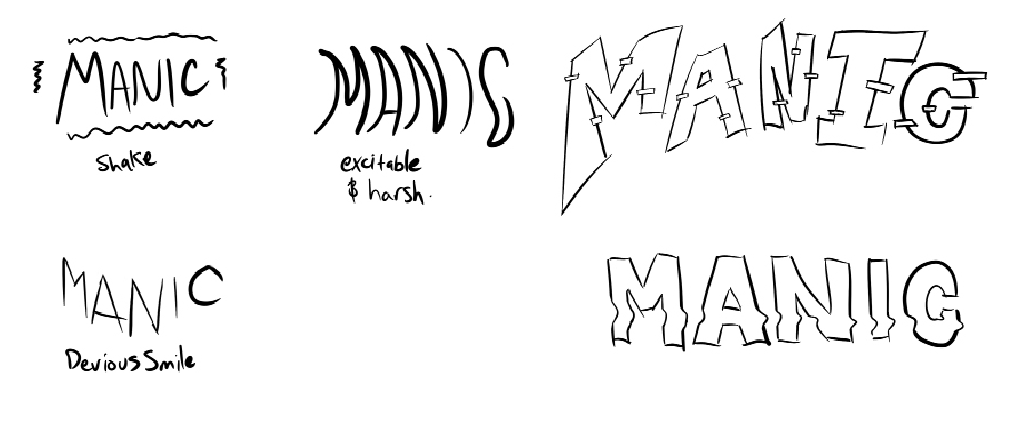 MANIC
Shake
MANIC
excitable
& harsh.
MANIC
MANIC
Devious Smile
MANIC